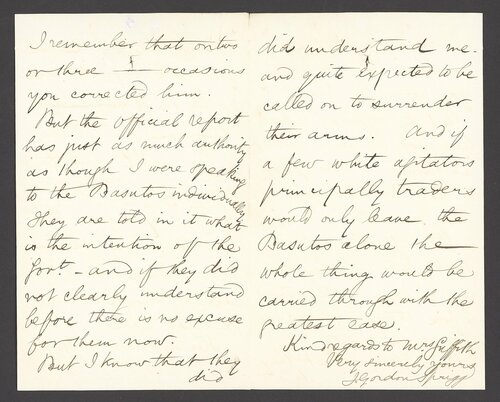 I remember that on two
or three — occasions
you corrected him.
But the official report
has just as much authority
as though I were speaking
to the Basutos individually
They are told in it what
is the intention off the
Govt. – and if they did
not clearly understand
before there is no excuse
for them now.
But I know that they
did
did understand me.
and quite expected to be
called on to surrender
their arms. And if
a few white agitators
principally traders
would only leave the
Basutos alone the
whole thing would be
carried through with the
greatest ease.
Kind regards to Mrs Griffith
Very sincerely yours
J Gordon Sprigg